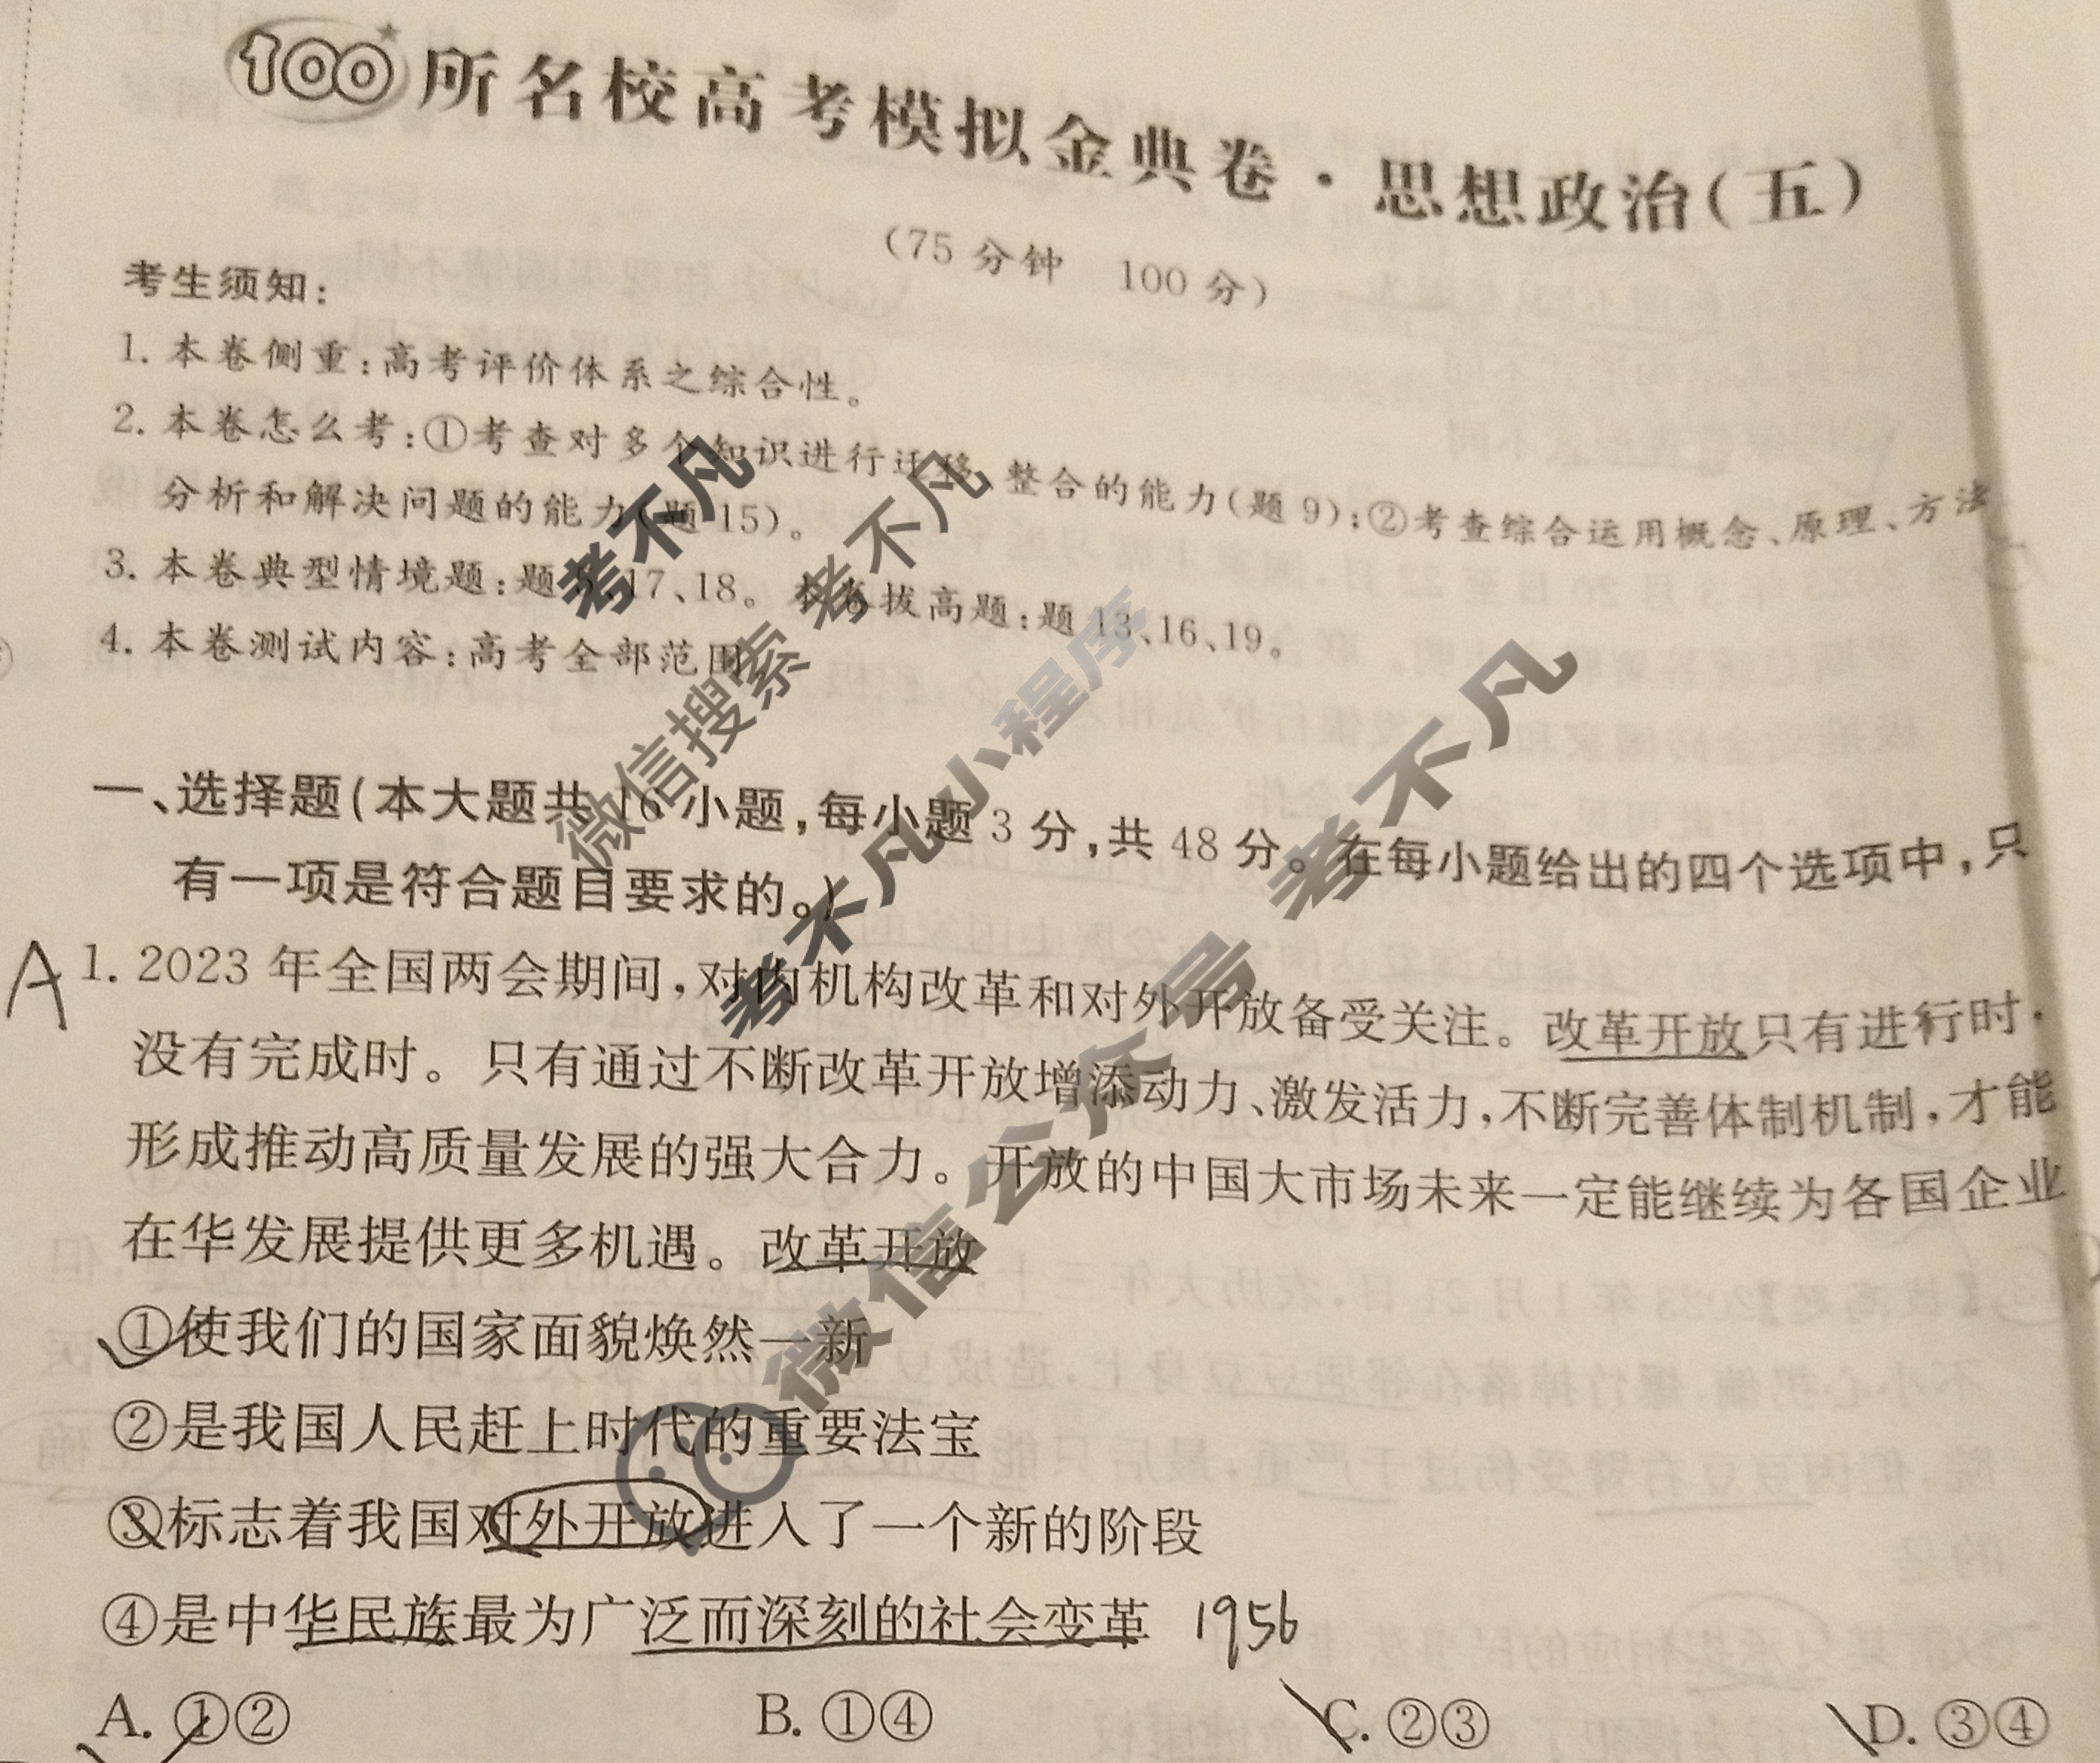 100所名校高考模拟金典卷·思想政治(五)
(75分钟 100分)
考生须知:
1. 本卷侧重:高考评价体系之综合性。
2. 本卷怎么考:①考查对多个知识进行迁移、整合的能力(题9);②考查综合运用概念、原理、方法
分析和解决问题的能力(题15)。
3. 本卷典型情境题:题、17、18。本卷拔高题:题13、16、19。
4. 本卷测试内容:高考全部范围
一、选择题(本大题共16小题,每小题3分,共48分。在每小题给出的四个选项中,只
有一项是符合题目要求的。)
A 1. 2023年全国两会期间,对内机构改革和对外开放备受关注。改革开放只有进行时,
没有完成时。只有通过不断改革开放增添动力、激发活力,不断完善体制机制,才能
形成推动高质量发展的强大合力。开放的中国大市场未来一定能继续为各国企业
在华发展提供更多机遇。改革开放
①使我们的国家面貌焕然一新
②是我国人民赶上时代的重要法宝
③标志着我国对外开放进入了一个新的阶段
④是中华民族最为广泛而深刻的社会变革 1956
A. ①② B. ①④ C. ②③ D. ③④
考不凡
微信搜索 考不凡
考不凡小程序
微信公众号 考不凡